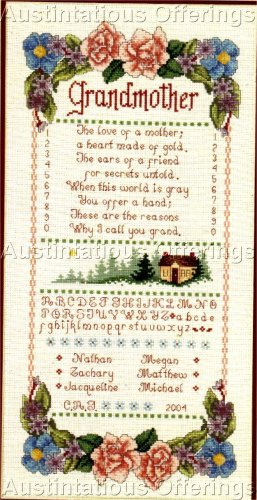 Austintatious Offerings
Grandmother
Austintatious Offerings
1 The love of a mother; 1
2 a heart made of gold. 2
3 The ears of a friend 3
4 for secrets untold. 4
5 When this world is gray 5
6 You offer a hand; 6
7 These are the reasons 7
8 Why I call you grand. 8
9 9
0 0
Austintatious Offerings
ABCDEFGHIJKLMNO
PQRSTUVWXYZ abcde
fghijklmnopqrstuvwxyz
Nathan Megan
Zachary Matthew
Jacqueline Michael
2004
Austintatious Offerings